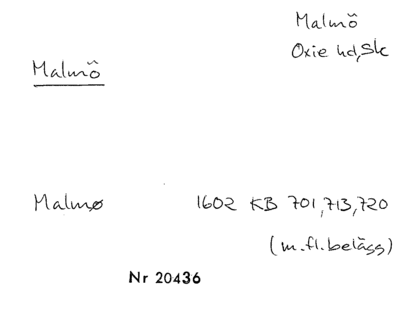 Malmö
Oxie hd, Sk
Malmö
Malmø 1602 KB 701, 713, 720
(m.fl. belägg)
Nr 20436